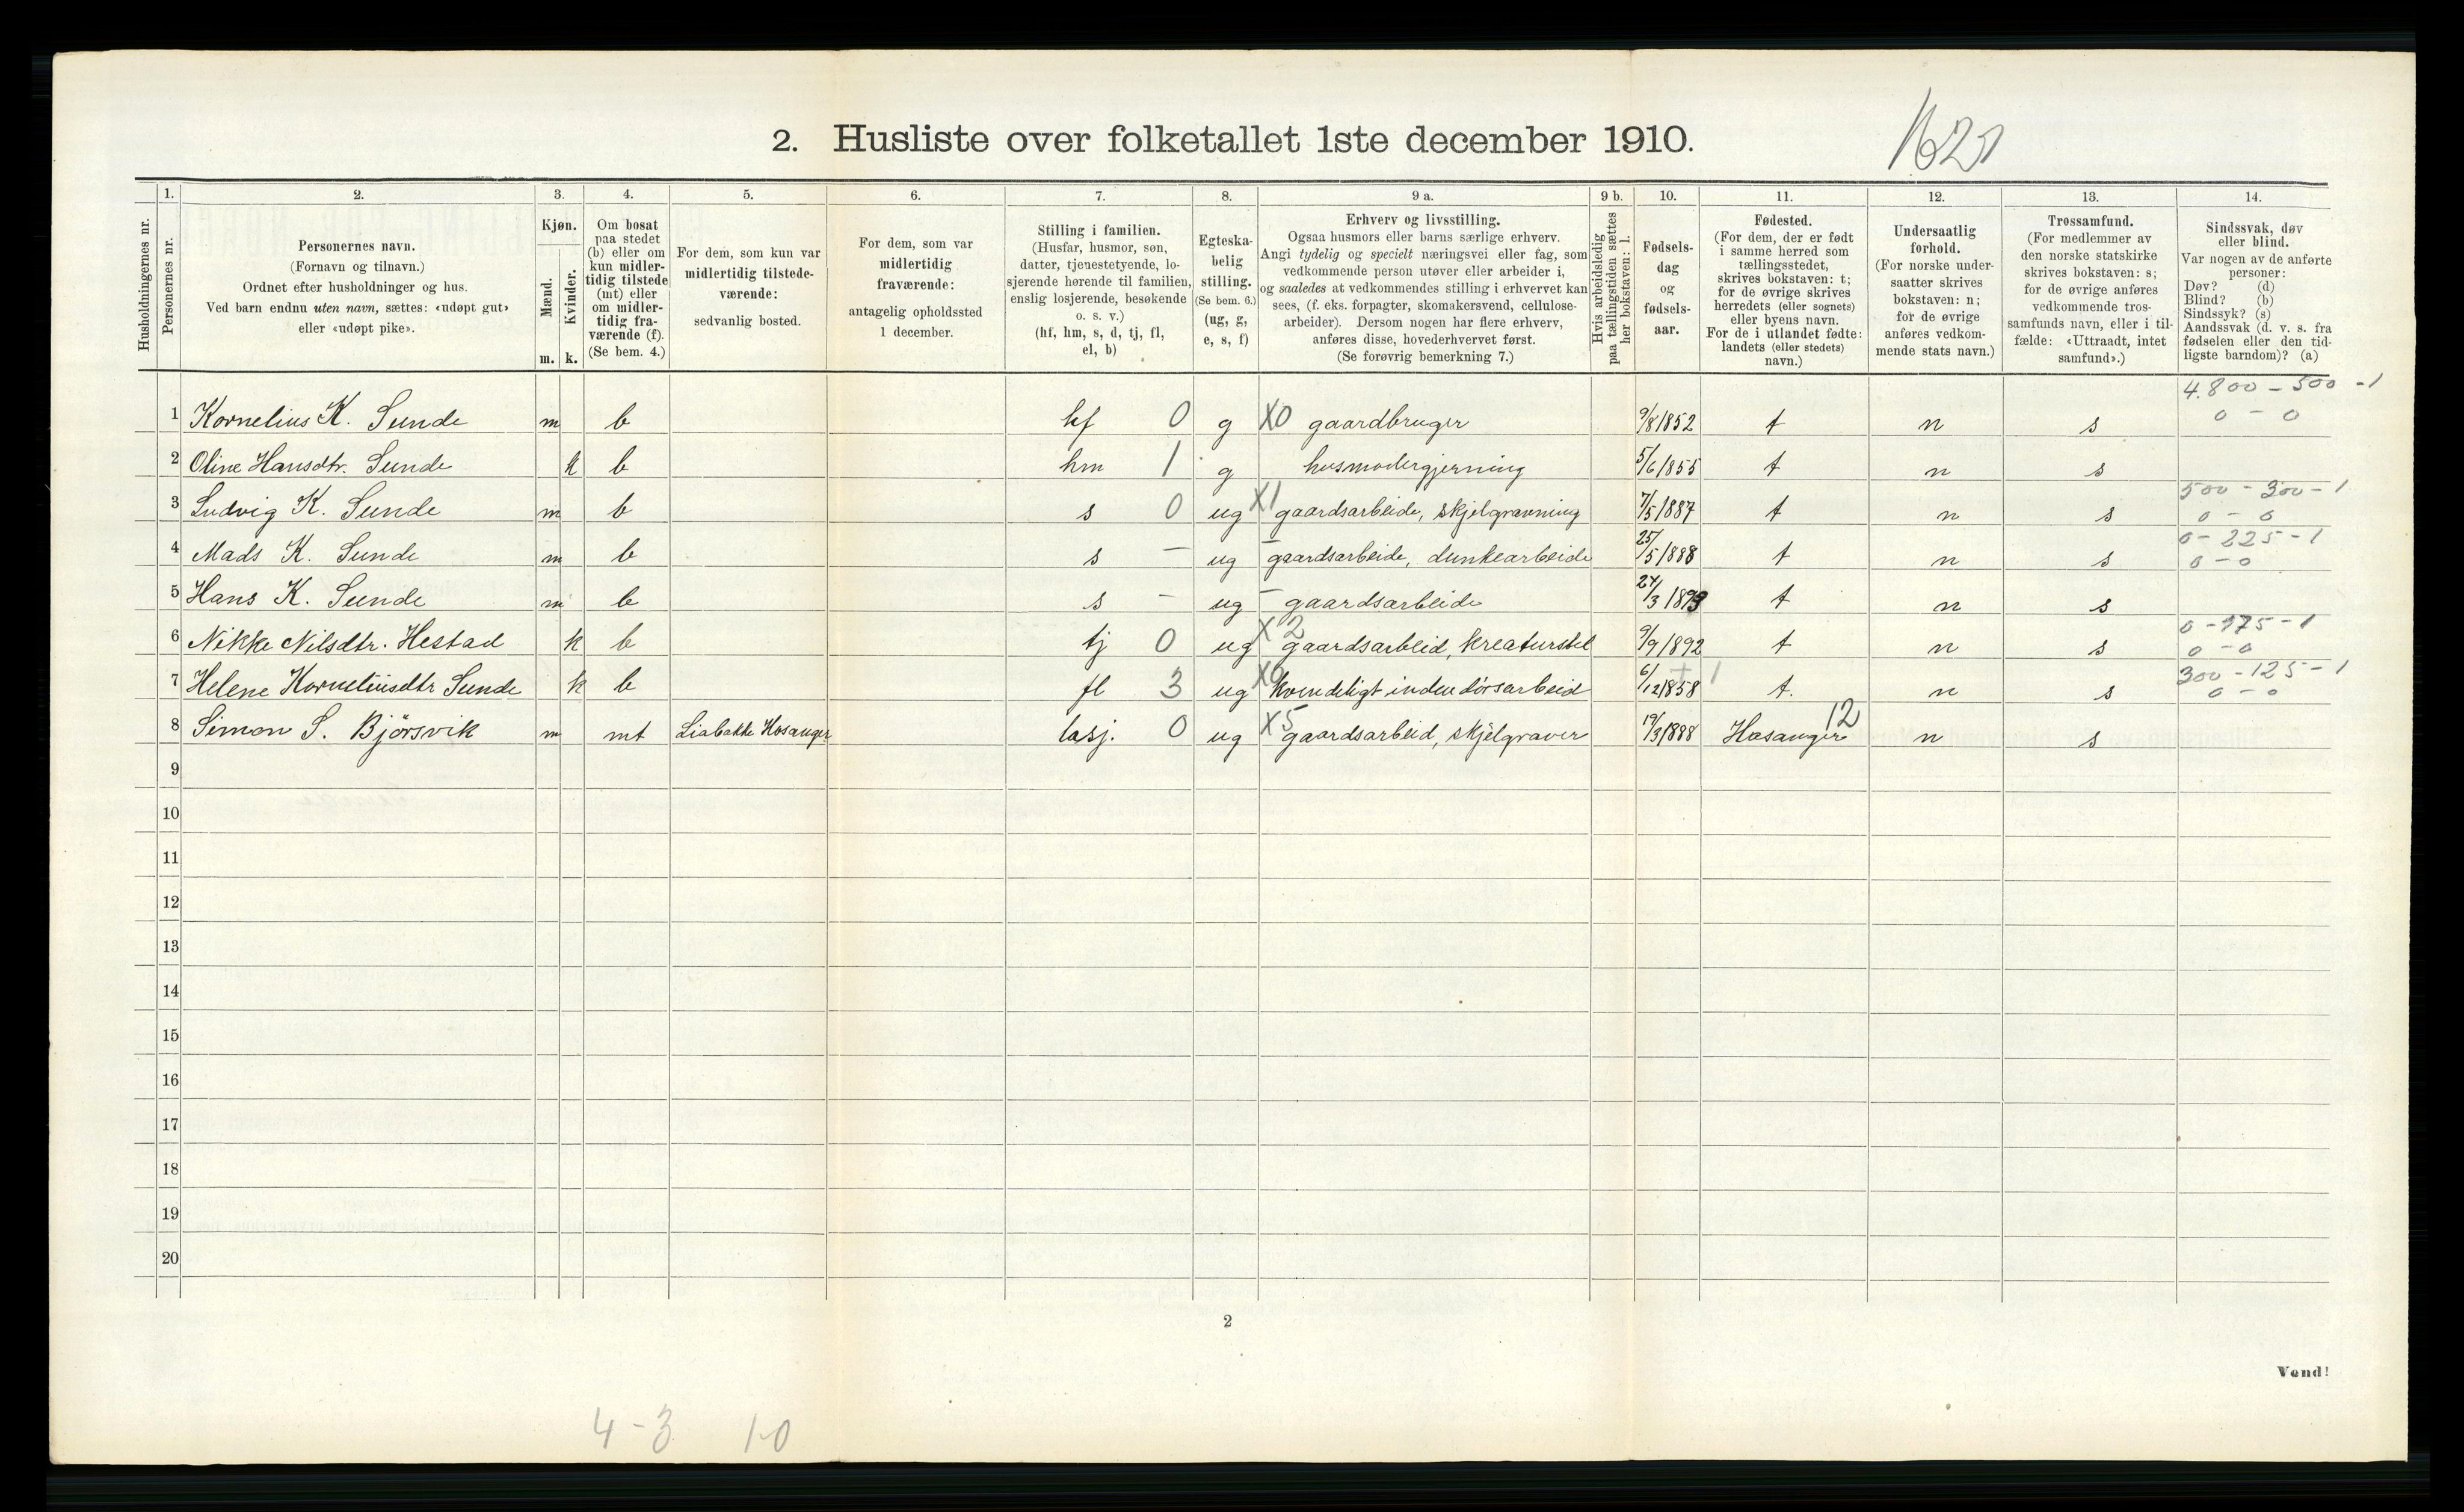 2. Husliste over folketallet 1ste december 1910.
1621
Husholdningernes nr.
1.
Personernes nr.
2.
Personernes navn.
(Fornavn og tilnavn.)
Ordnet efter husholdninger og hus.
Ved barn endnu uten navn, sættes: «udøpt gut»
eller «udøpt pike».
3.
Kjøn.
Mænd.
Kvinder.
m. k.
4.
Om bosat
paa stedet
(b) eller om
kun midler-
tidig tilstede
(mt) eller
om midler-
tidig fra-
værende (f).
(Se bem. 4.)
5.
For dem, som kun var
midlertidig tilstede-
værende:
sedvanlig bosted.
6.
For dem, som var
midlertidig
fraværende:
antagelig opholdssted
1 december.
7.
Stilling i familien.
(Husfar, husmor, søn,
datter, tjenestetyende, lo-
sjerende hørende til familien,
enslig losjerende, besøkende
o. s. v.)
(hf, hm, s, d, tj, fl,
el, b)
8.
Egteska-
belig
stilling.
(Se bem. 6.)
(ug, g,
e, s, f)
9 a.
Erhverv og livsstilling.
Ogsaa husmors eller barns særlige erhverv.
Angi tydelig og specielt næringsvei eller fag, som
vedkommende person utøver eller arbeider i,
og saaledes at vedkommendes stilling i erhvervet kan
sees, (f. eks. forpagter, skomakersvend, cellulose-
arbeider). Dersom nogen har flere erhverv,
anføres disse, hovederhvervet først.
(Se forøvrig bemerkning 7.)
9 b.
Hvis arbeidsledig
paa tællingstiden sættes
her bokstaven: l.
10.
Fødsels-
dag
og
fødsels-
aar.
11.
Fødested.
(For dem, der er født
i samme herred som
tællingsstedet,
skrives bokstaven: t;
for de øvrige skrives
herredets (eller sognets)
eller byens navn.
For de i utlandet fødte:
landets (eller stedets)
navn.)
12.
Undersaatlig
forhold.
(For norske under-
saatter skrives
bokstaven: n;
for de øvrige
anføres vedkom-
mende stats navn.)
13.
Trossamfund.
(For medlemmer av
den norske statskirke
skrives bokstaven: s;
for de øvrige anføres
vedkommende tros-
samfunds navn, eller i til-
fælde: «Uttraadt, intet
samfund».)
14.
Sindssvak, døv
eller blind.
Var nogen av de anførte
personer:
Døv? (d)
Blind? (b)
Sindssyk? (s)
Aandssvak (d. v. s. fra
fødselen eller den tid-
ligste barndom)? (a)
4.800 - 500 - 1
1 Kornelius K. Sunde m b hf 0 g X0 gaardbruger 9/8 1852 t n s 0 - 0
2 Oline Hansdtr. Sunde k b hm 1 g husmodergjerning 5/6 1855 t n s
500 - 300 - 1
3 Ludvig K. Sunde m b s 0 ug X1 gaardsarbeide, skjelgravning 7/5 1887 t n s 0 - 0
0 - 225 - 1
4 Mads K. Sunde m b s - ug - gaardsarbeide, dunkearbeide 25/5 1888 t n s 0 - 0
5 Hans K. Sunde m b s - ug - gaardsarbeide 24/3 1893 t n s
0 - 175 - 1
6 Nikke Nilsdtr. Hestad k b tj 0 ug X2 gaardsarbeid, kreaturstel 9/9 1892 t n s 0 - 0
300 - 125 - 1
7 Helene Korneliusdtr Sunde k b fl 3 ug X0 kvendeligt indendörsarbeid 6/12 1858 + 1 t. n s 0 - 0
8 Simon S. Björsvik m mt Liabakke Hosanger losj. 0 ug X5 gaardsarbeid, skjelgraver 19/3 1888 Hosanger 12 n s
9
10
11
12
13
14
15
16
17
18
19
20
2
Vend!
4 - 3 1-0